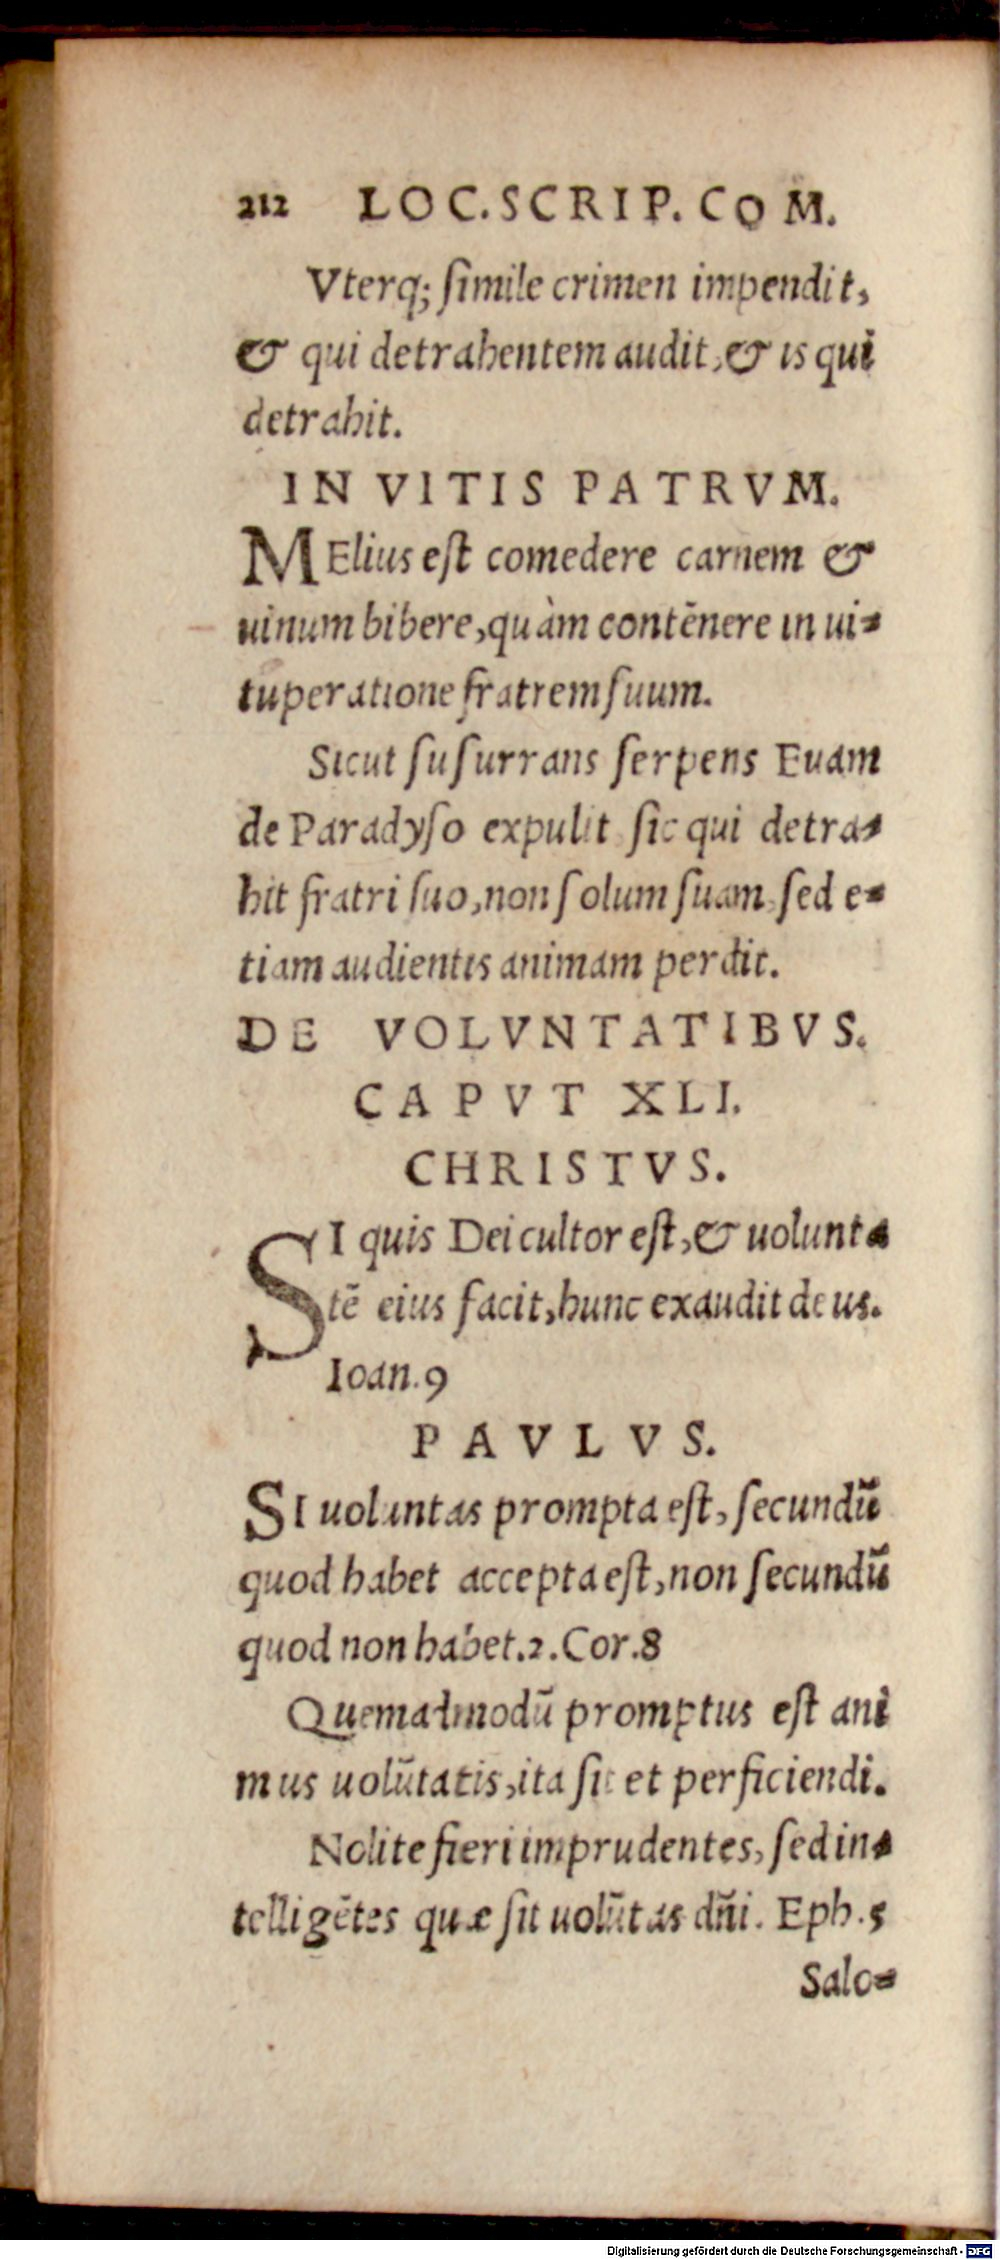 212 LOC. SCRIP. COM.
Vterq; ſimile crimen impendit,
& qui detrahentem audit, & is qui
detrahit.
IN VITIS PATRVM.
MElius eſt comedere carnem &
uinum bibere, quàm contēnere in ui-
tuperatione fratrem ſuum.
Sicut ſuſurrans ſerpens Euam
de Paradyſo expulit ſic qui detra-
hit fratri ſuo, non ſolum ſuam, ſed e-
tiam audientis animam perdit.
DE VOLVNTATIBVS.
CAPVT XLI.
CHRISTVS.
SI quis Dei cultor eſt, & uolunta
tē eius facit, hunc exaudit deus.
Ioan. 9
PAVLVS.
SI uoluntas prompta eſt, ſecundū
quod habet accepta eſt, non ſecundū
quod non habet. 2. Cor. 8
Quemadmodū promptus eſt ani
mus uolūtatis, ita ſit et perficiendi.
Nolite fieri imprudentes, ſed in-
telligētes quæ ſit uolūtas dñi. Eph. 5
Salo-
Digitalisierung gefördert durch die Deutsche Forschungsgemeinschaft - DFG